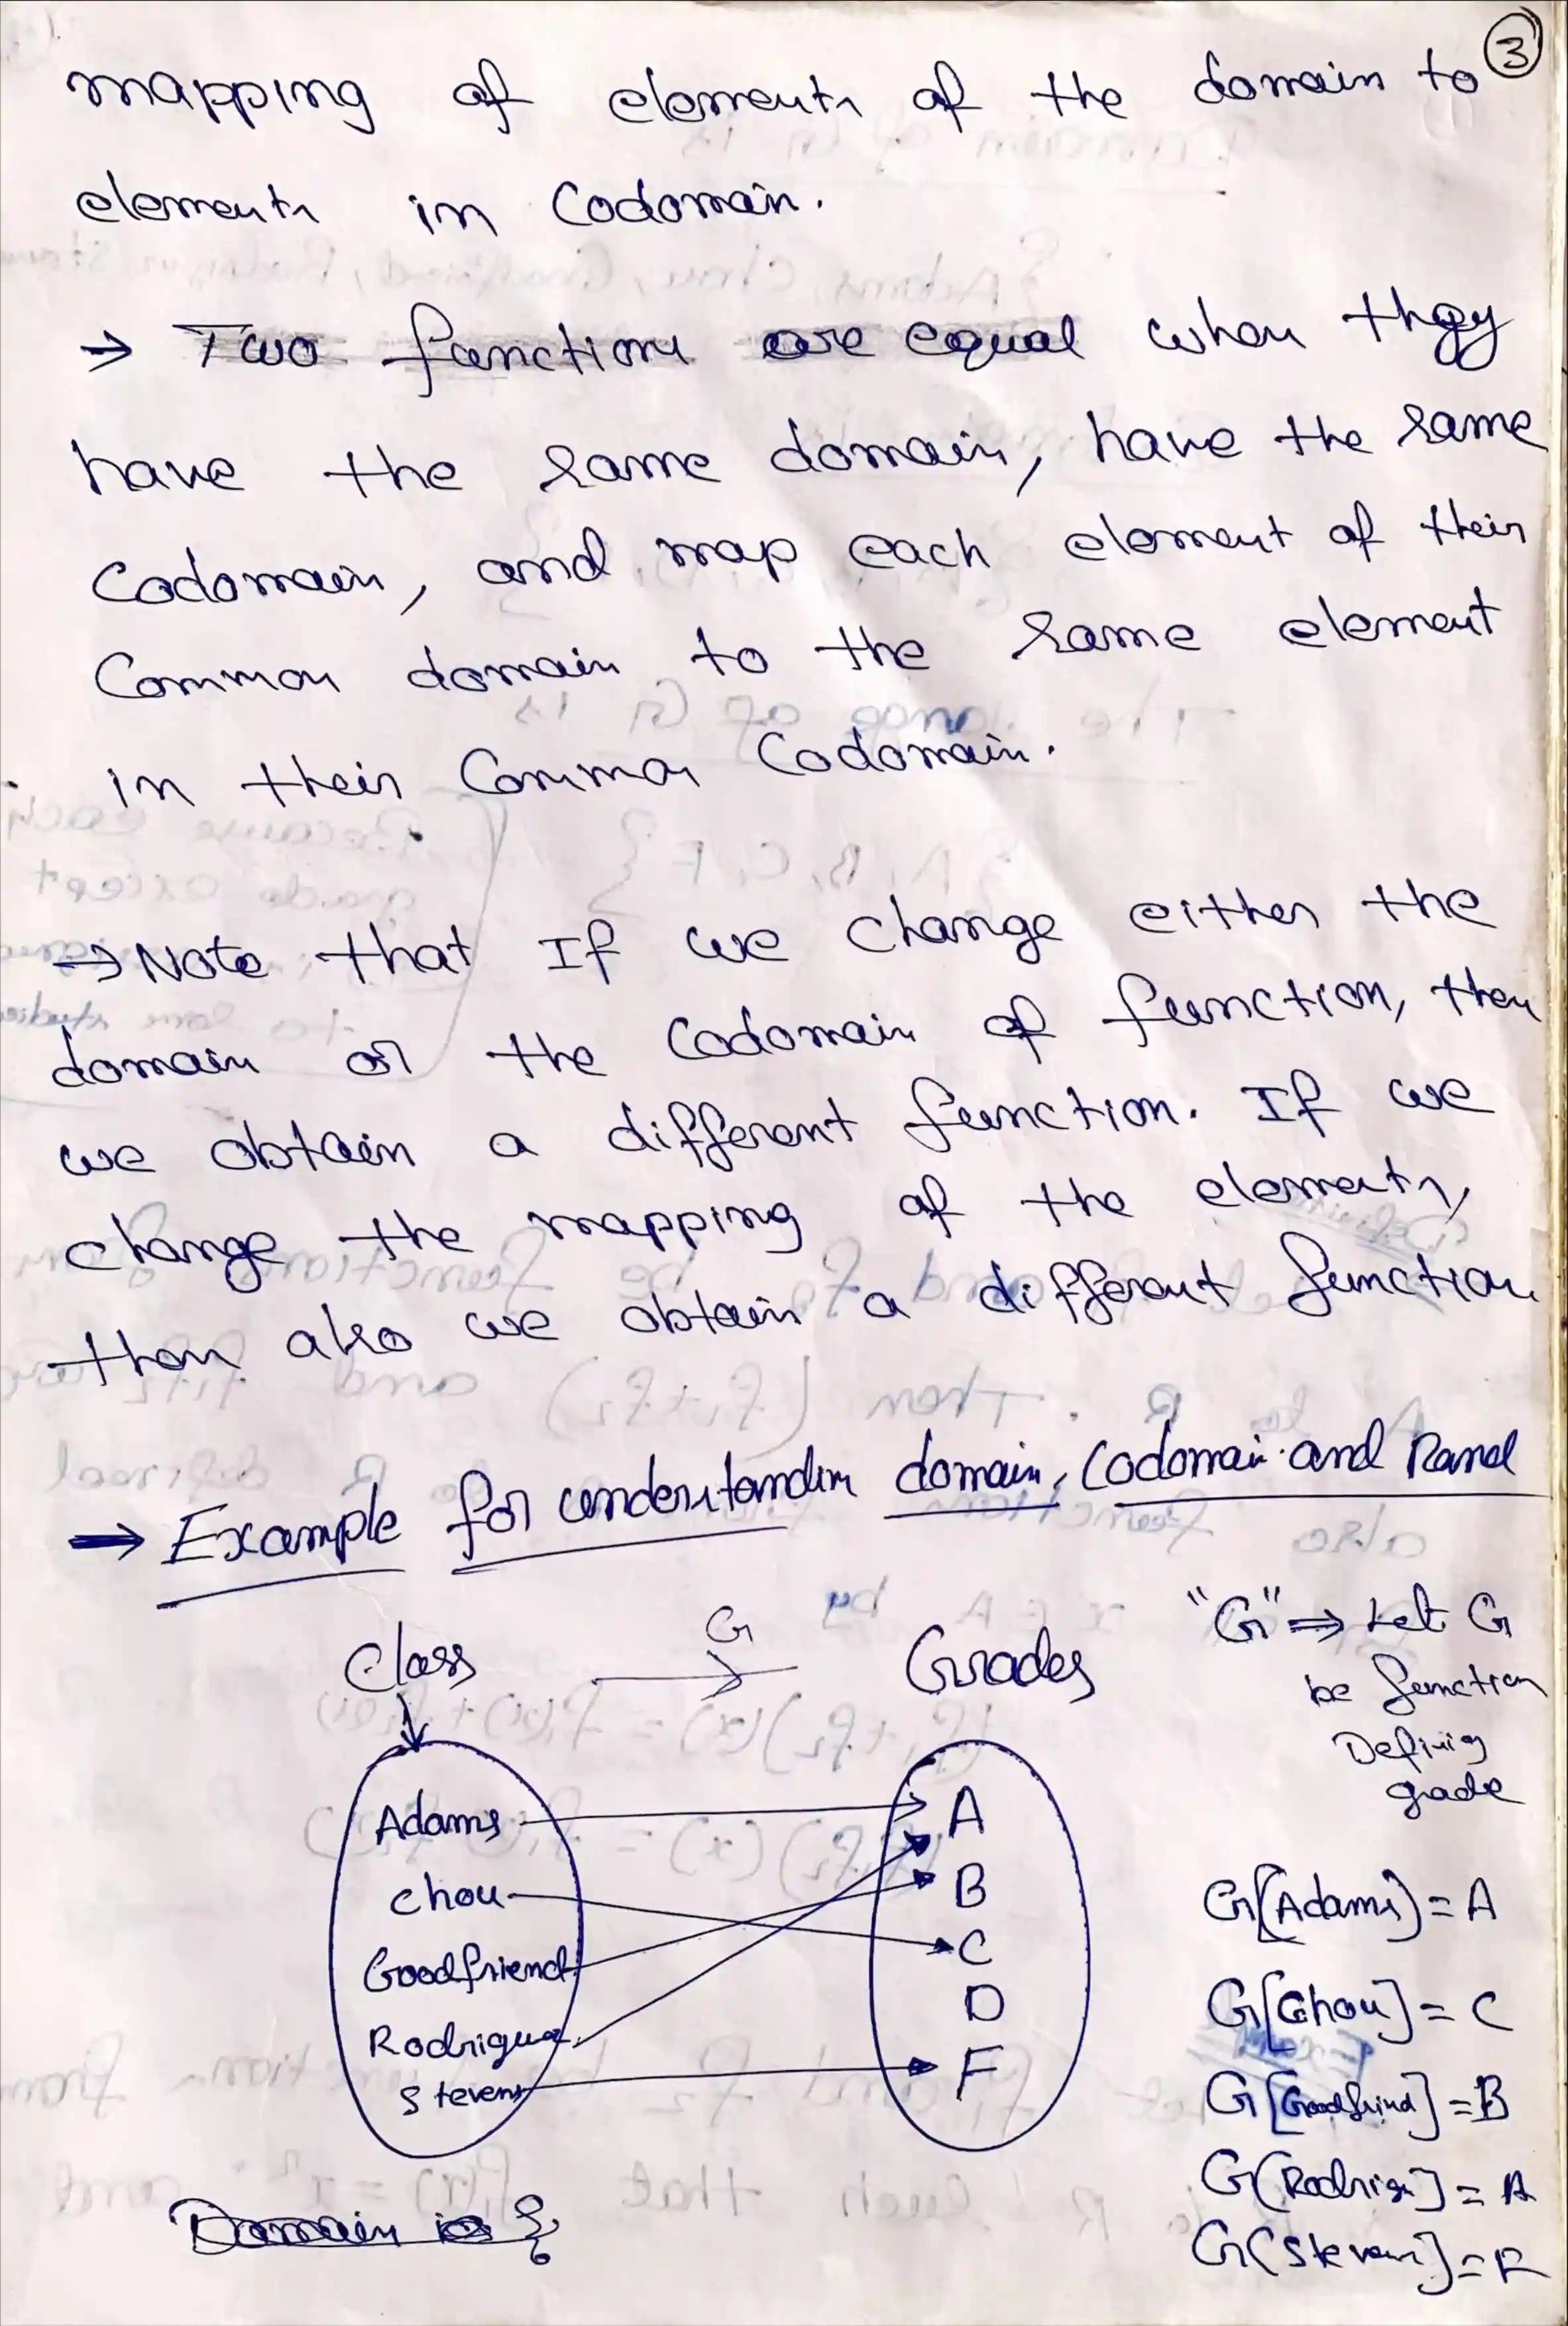 3
mapping of elements of the domain to
elements in Codomain.
→ Two functions are equal when they
have the same domain, have the same
Codomain, and map each element of their
Common domain to the same element
in their Common Codomain.
→ Note that If we change either the
domain or the Codomain of function, then
we obtain a different function. If we
change the mapping of the elements,
then also we obtain a different function.
→ Example for understandin domain, Codomain and
Class G Grades
"G" ⇒ Let G
be function
Defining
grade
Adams A
Chou B
Goodfriend C
Rodrigue D
Stevens F
G[Adams) = A
G[Chou] = C
G[Goodfrind] = B
G(Rodrig] = A
G(Steven] = F
Domain is {